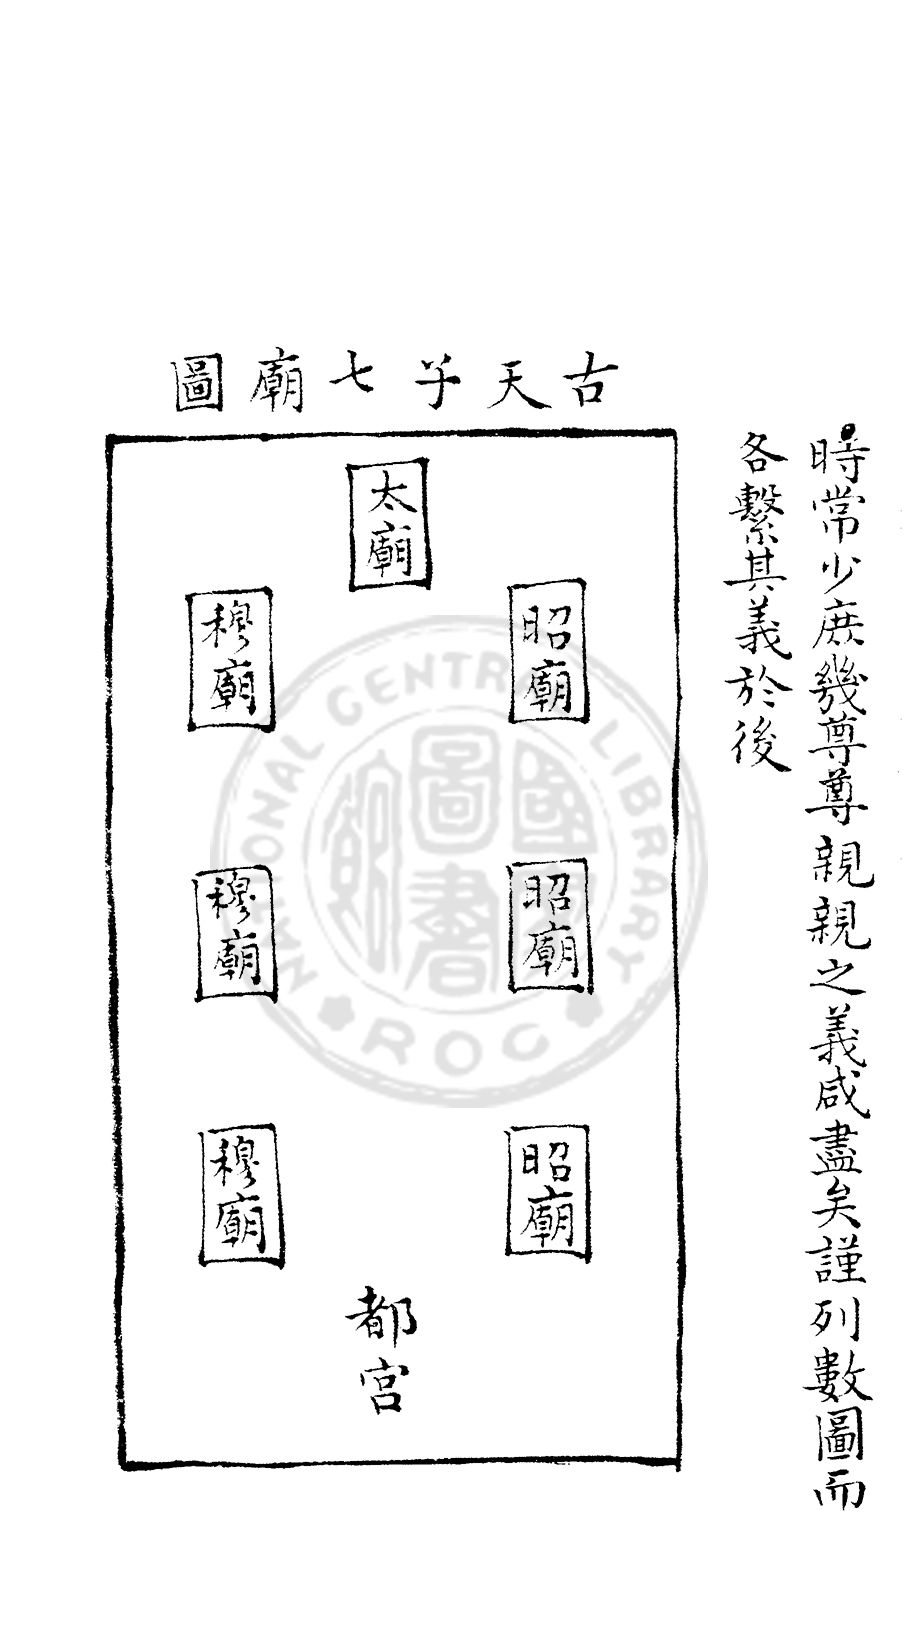 時常少庶幾尊尊親親之義咸盡矣謹列數圖而
各繫其義於後
古天子七廟圖
太廟
昭廟
穆廟
昭廟
穆廟
昭廟
穆廟
都宮
NATIONAL CENTRAL LIBRARY
ROC
國家圖書館